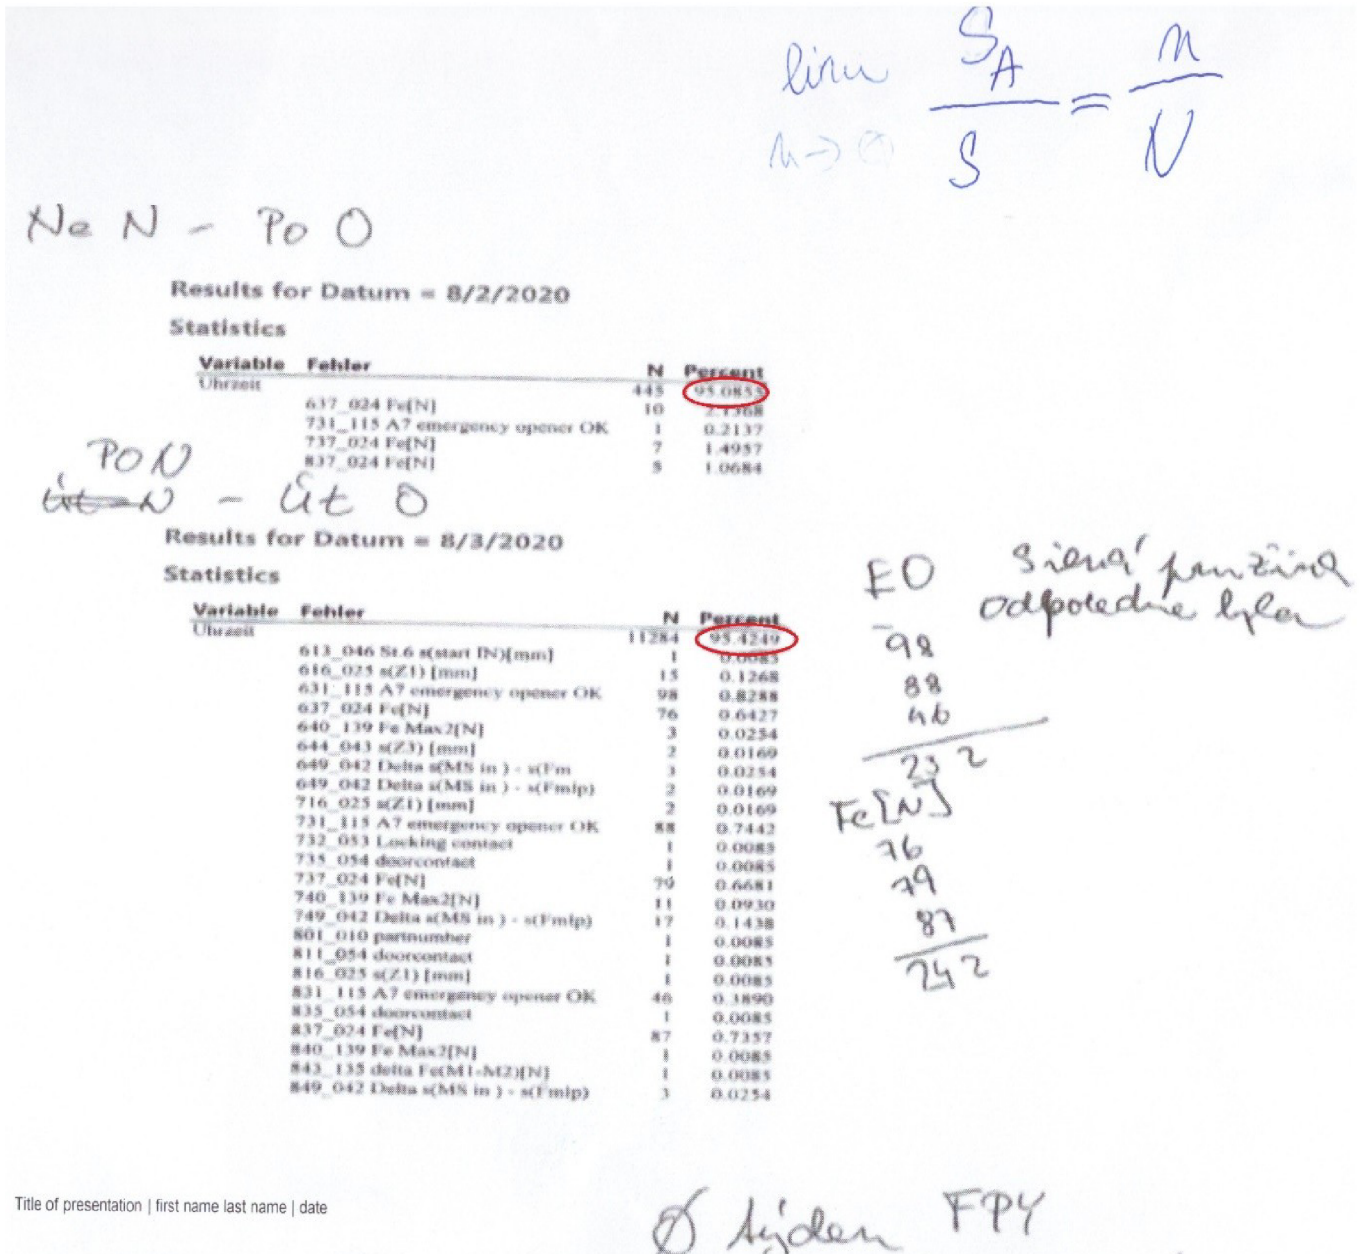 lim S_A / S = n / N
n→
Ne N - Po O
Results for Datum = 8/2/2020
Statistics
Variable Fehler N Percent
Uhrzeit 445 95.0855
637_024 Fe[N] 10 2.1368
731_115 A7 emergency opener OK 1 0.2137
737_024 Fe[N] 7 1.4957
837_024 Fe[N] 5 1.0684
PO N
Út N - Út O
Results for Datum = 8/3/2020
Statistics
Variable Fehler N Percent
Uhrzeit 11284 95.4249
613_046 St.6 s(start IN)[mm] 1 0.0085
616_025 s(Z1) [mm] 15 0.1268
631_115 A7 emergency opener OK 98 0.8288
637_024 Fe[N] 76 0.6427
640_139 Fe Max2[N] 3 0.0254
644_043 s(Z3) [mm] 2 0.0169
649_042 Delta s(MS in ) - s(Fm 3 0.0254
649_042 Delta s(MS in ) - s(Fmlp) 2 0.0169
716_025 s(Z1) [mm] 2 0.0169
731_115 A7 emergency opener OK 88 0.7442
732_053 Locking contact 1 0.0085
735_054 doorcontact 1 0.0085
737_024 Fe[N] 79 0.6681
740_139 Fe Max2[N] 11 0.0930
749_042 Delta s(MS in ) - s(Fmlp) 17 0.1438
801_010 partnumber 1 0.0085
811_054 doorcontact 1 0.0085
816_025 s(Z1) [mm] 1 0.0085
831_115 A7 emergency opener OK 46 0.3890
835_054 doorcontact 1 0.0085
837_024 Fe[N] 87 0.7357
840_139 Fe Max2[N] 1 0.0085
843_135 delta Fe(M1-M2)[N] 1 0.0085
849_042 Delta s(MS in ) - s(Fmlp) 3 0.0254
EO pružina
odpoledne byla
98
88
46
232
Fe[N]
76
79
87
242
Title of presentation | first name last name | date
Ø týden FPY